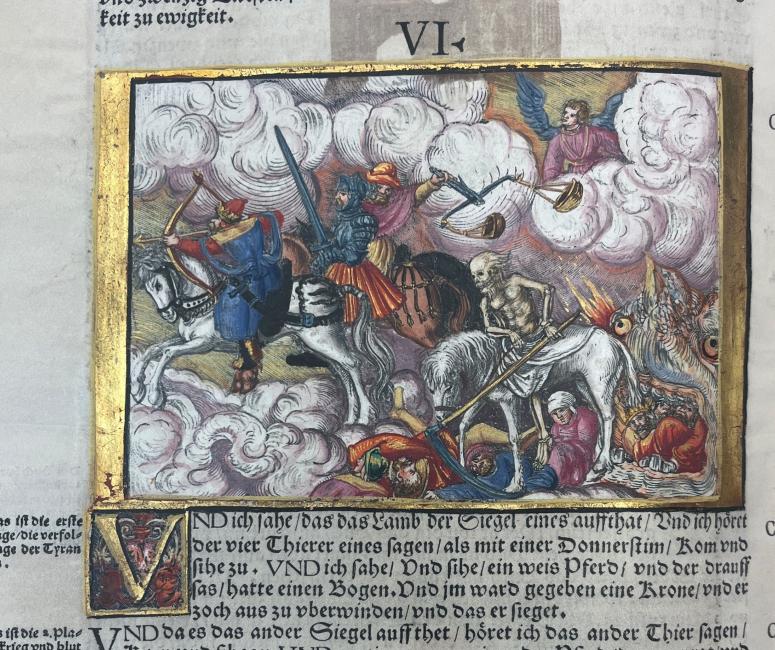 keit zu ewigkeit.
VI.
VND ich sahe/das das Lamb der Siegel eines auffthat/ Vnd ich höret
der vier Thierer eines sagen/als mit einer Donnerstim/ Kom vnd
sihe zu. VND ich sahe/ Vnd sihe/ein weis Pferd/ vnd der drauff
sas/hatte einen Bogen. Vnd jm ward gegeben eine Krone/vnd er
zoch aus zu vberwinden/vnd das er sieget.
as ist die erste
age/die verfol-
age der Tyran
VND da es das ander Siegel auff thet/ höret ich das ander Thier sagen/
s ist die 2. Pla-
krieg vnd blut